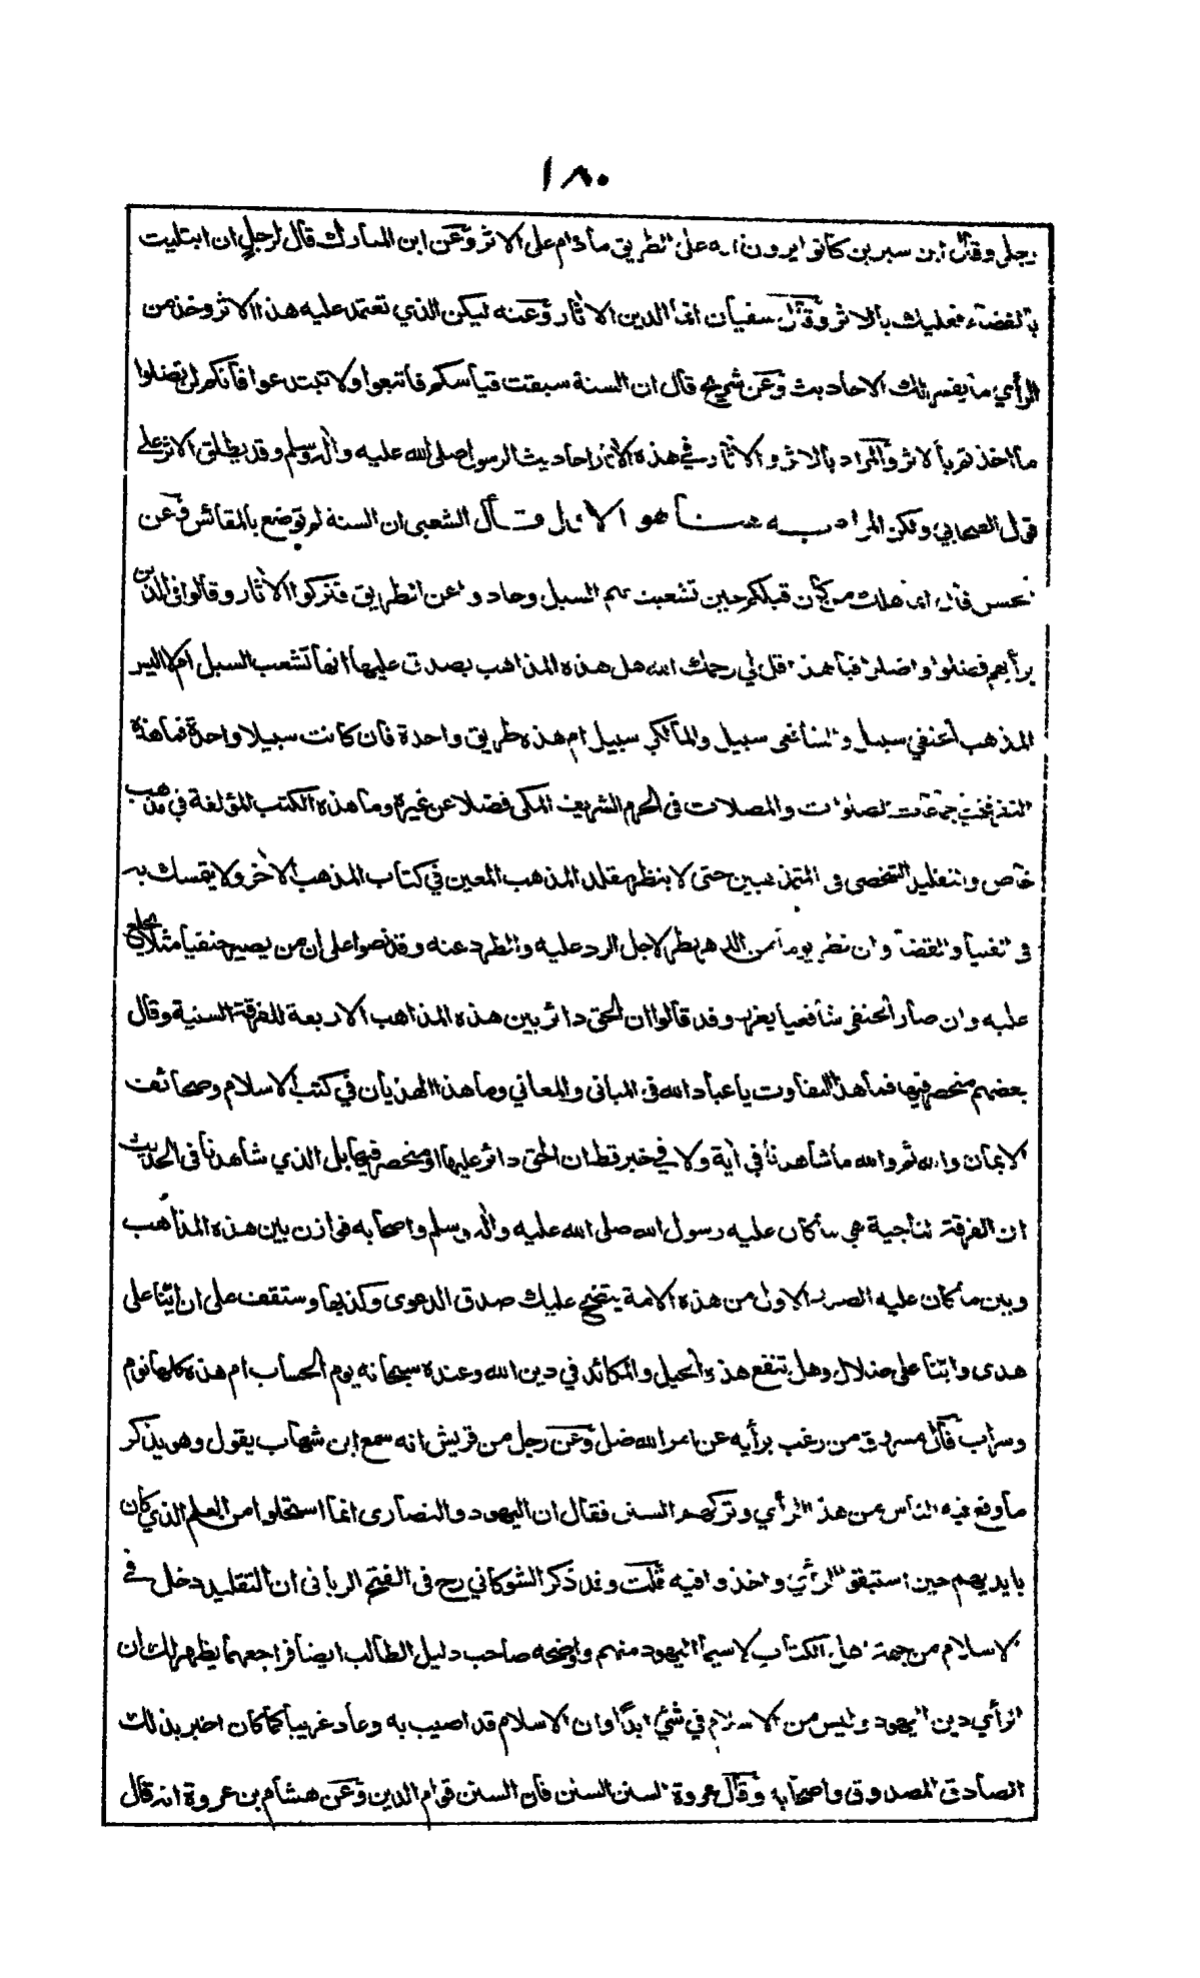 ١٨٠
رجلي وقال ابن سيرين كانوا يرون انه على الطريق مادام على الاثر وعن ابن المبارك قال لرجل ان ابتليت
بالقضاء فعليك بالاثر وقال سفيان انما الدين الاثار وعنه ليكن الذي تعتمد عليه هذا الاثر وخذ من
الرأي ما يفسر لك الاحاديث وعن شريح قال ان السنة سبقت قياسكم فاتبعوا ولا تبتدعوا فانكم لن تضلوا
ما اخذتم بالاثر والمراد بالاثر والاثار في هذه الاثار احاديث الرسول صلى الله عليه واله وسلم وقد يطلق الاثر على
قول الصحابي ولكن المراد به هنا هو الاول قال الشعبي ان السنة لم توضع بالمقائس وعن
الحسن قال انما هلك من كان قبلكم حين تشعبت بهم السبل وحادوا عن الطريق فتركوا الاثار وقالوا في الدين
برأيهم فضلوا واضلوا فيا هذا قل لي رحمك الله هل هذه المذاهب يصدق عليها انها تشعب السبل ام لا اليس
المذهب الحنفي سبيل والشافعي سبيل والمالكي سبيل ام هذه طريق واحدة فان كانت سبيلا واحدة فما هذه
جماعات الصلوات والمصلات في الحرم الشريف المكي فضلا عن غيره وما هذه الكتب المؤلفة في مذهب
خاص والتقليد الشخصي في المتمذهبين حتى لا ينظر مقلد المذهب المعين في كتاب المذهب الاخر ولا يتمسك به
في الفتيا والقضا وان نظر يوما من الدهر نظر لاجل الرد عليه والطرد عنه وقد نصوا على ان من يصير حنفيا مثلا يخلع
عليه وان صار الحنفي شافعيا يعزر وقد قالوا ان الحق دائر بين هذه المذاهب الاربعة للفرقة السنية وقال
بعضهم منحصر فيها فما هذا التفاوت يا عباد الله في المباني والمعاني وما هذا الهذيان في كتب الاسلام وصحائف
الايمان والله ثم والله ما شاهدنا في اية ولا في خبر قط ان الحق دائر عليها او منحصر فيها بل الذي شاهدنا في الحديث
ان الفرقة الناجية هي ما كان عليه رسول الله صلى الله عليه واله وسلم واصحابه فوازن بين هذه المذاهب
وبين ما كان عليه الصدر الاول من هذه الامة يتضح عليك صدق الدعوى وكذبها وستقف على ان اينا على
هدى واينا على ضلال وهل تنفع هذه الحيل والمكائد في دين الله وعنده سبحانه يوم الحساب ام هذه كلها نوم
وسراب قال مسروق من رغب برأيه عن امر الله ضل وعن رجل من قريش انه سمع ابن شهاب يقول وهو يذكر
ما وقع فيه الناس من هذا الرأي وتركهم السنن فقال ان اليهود والنصارى انما استحلوا من العلم الذي كان
بايديهم حين استبقوا الرأي واخذوا فيه قلت وقد ذكر الشوكاني رح في الفتح الرباني ان التقليد دخل في
الاسلام من جهة اهل الكتاب لاسيما اليهود منهم واوضحه صاحب دليل الطالب ايضا فراجعهما يظهر لك ان
الرأي دين اليهود وليس من الاسلام في شئ ابدا وان الاسلام قد اصيب به وعاد غريبا كما كان اخبر بذلك
الصادق المصدوق واصحابه وقال عروة السنن السنن فان السنن قوام الدين وعن هشام بن عروة انه قال